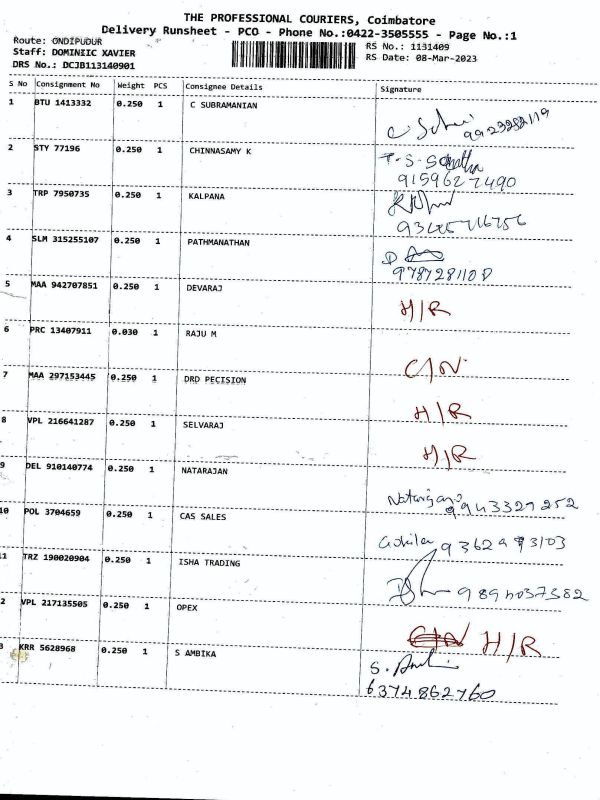 THE PROFESSIONAL COURIERS, Coimbatore
Delivery Runsheet - PCO - Phone No.:0422-3505555 - Page No.:1
Route: ONDIPUDUR
RS No.: 1131409
Staff: DOMINIIC XAVIER
RS Date: 08-Mar-2023
DRS No.: DCJB113140901
S No Consignment No Weight PCS Consignee Details Signature
1 BTU 1413332 0.250 1 C SUBRAMANIAN
2 STY 77196 0.250 1 CHINNASAMY K
9159627490
3 TRP 7950735 0.250 1 KALPANA
4 SLM 315255107 0.250 1 PATHMANATHAN
5 MAA 942707851 0.250 1 DEVARAJ H/R
6 PRC 13407911 0.030 1 RAJU M C/N
7 MAA 297153445 0.250 1 DRD PECISION H/R
8 VPL 216641287 0.250 1 SELVARAJ H/R
9 DEL 910140774 0.250 1 NATARAJAN 9943329252
10 POL 3704659 0.250 1 CAS SALES
11 TRZ 190020904 0.250 1 ISHA TRADING
2 VPL 217135505 0.250 1 OPEX H/R
3 KRR 5628968 0.250 1 S AMBIKA
6374862760